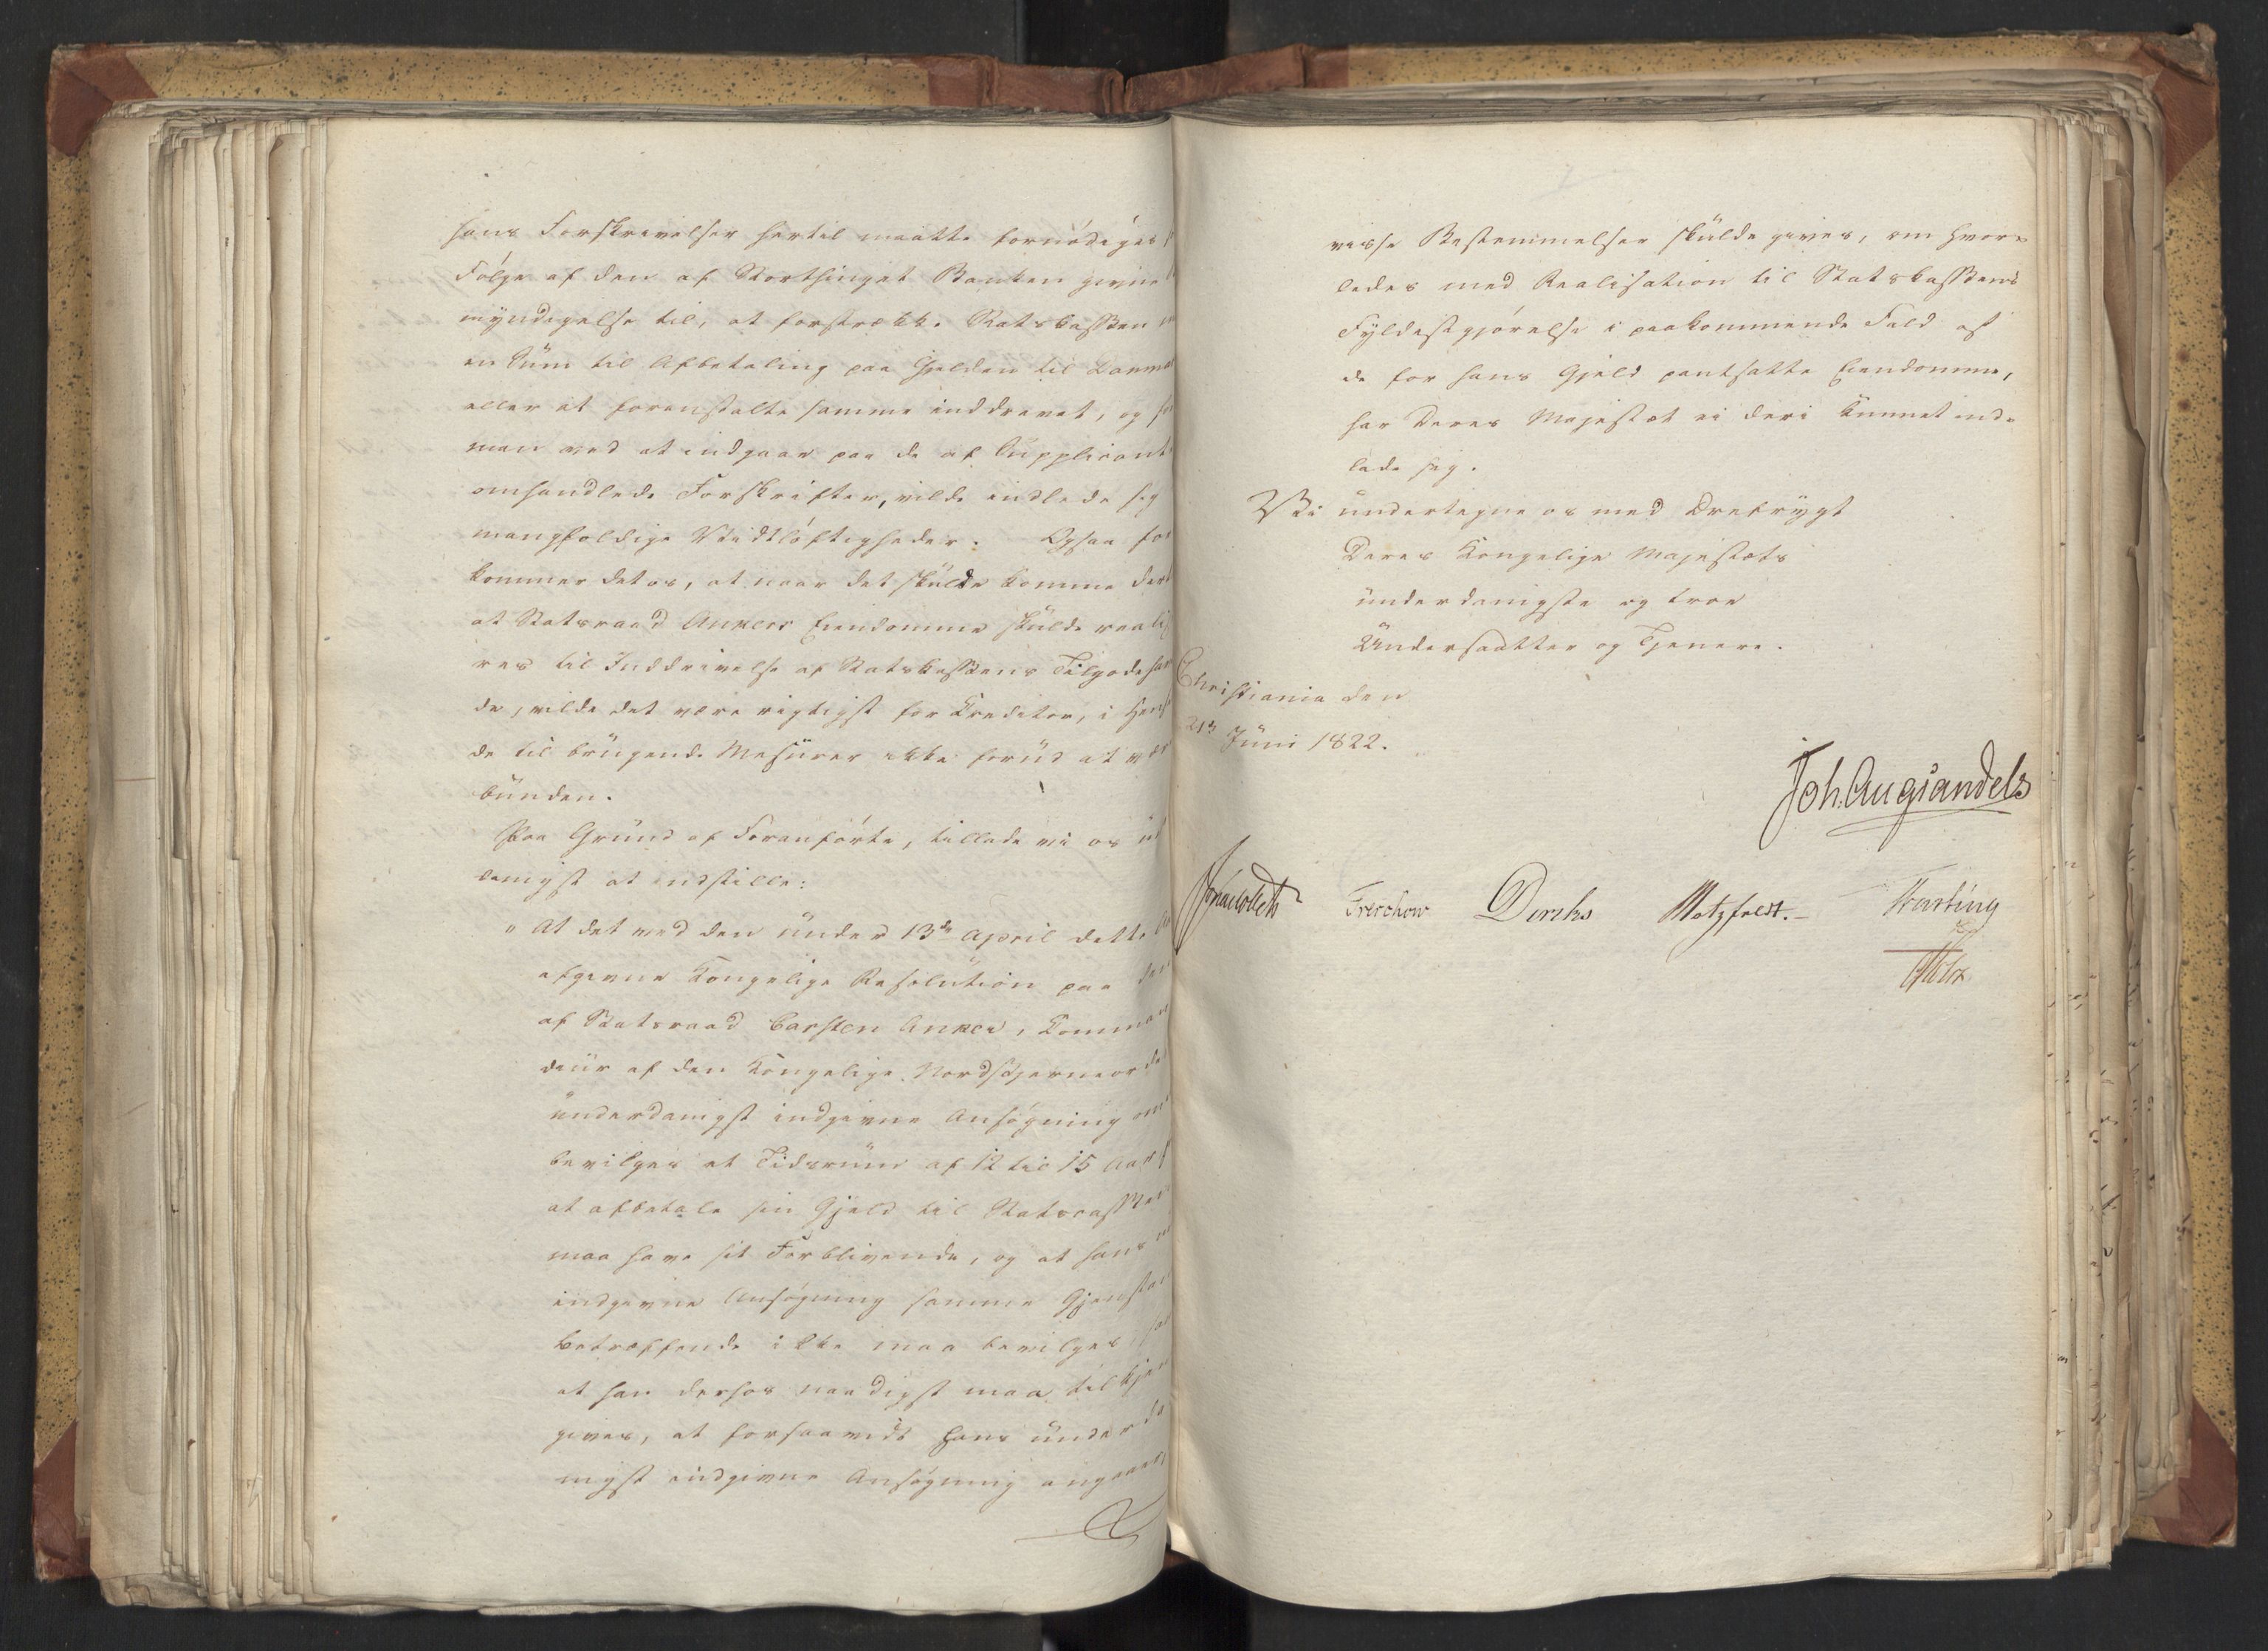 hans Forskrivelser hertil maatte fornødiges
Følge af den af Storthinget Banken givne
myndigelse til, at forstrække Statskassen
en Sum til Afbetaling paa Gjelden til Danm
eller at foranstalte samme inddrevet, og
man ved at indgaae paa de af Supplicant
omhandlede Forskrifter, vilde indlede sig
mangfoldige Vidtløftigheder. Ogsaa for
kommer det os, at naar det skulde komme der
at Statsraad Ankers Eiendomme skulde reali
res til Inddrivelse af Statskassens Tilgodehav
de, vilde det være rigtigst for Creditor, i Hens
de til brugende Mesurer ikke forud at vær
bunden.
Paa Grund af Foranførte, tillade vi os
danigst at indstille:
" At det ved den under 13de April dette
afgivne Kongelige Resolution paa den
af Statsraad Carsten Anker, Comman
deur af den Kongelige Nordstjerneord
underdanigst indgivne Ansøgning om
bevilges et Tidsrum af 12 til 15 Aar
at afbetale sin Gjeld til Statscassen
maa have sit Forblivende, og at hans
indgivne Ansøgning samme Gjensta
betræffende ikke maa bevilges
at han derhos naadigst maa tilkje
gives, at forsaavidt hans underda
nigst indgivne Ansøgning angaaer,
visse Bestemmelser skulde gives, om hvor-
ledes med Realisation til Statskassens
Fyldestgjørelse i paakommende Fald af
de for hans Gjeld pantsatte Eiendomme,
har Deres Majestæt ei deri kunnet ind-
lade sig.
Vi undertegne os med Ærefrygt
Deres Kongelige Majestæts
underdanigste og troe
Undersaatter og Tjenere.
Christiania den
21de Juni 1822.
Joh. Aug Sandels
Jonas Collett Treschow Diriks Motzfeldt.- Fasting
Holst